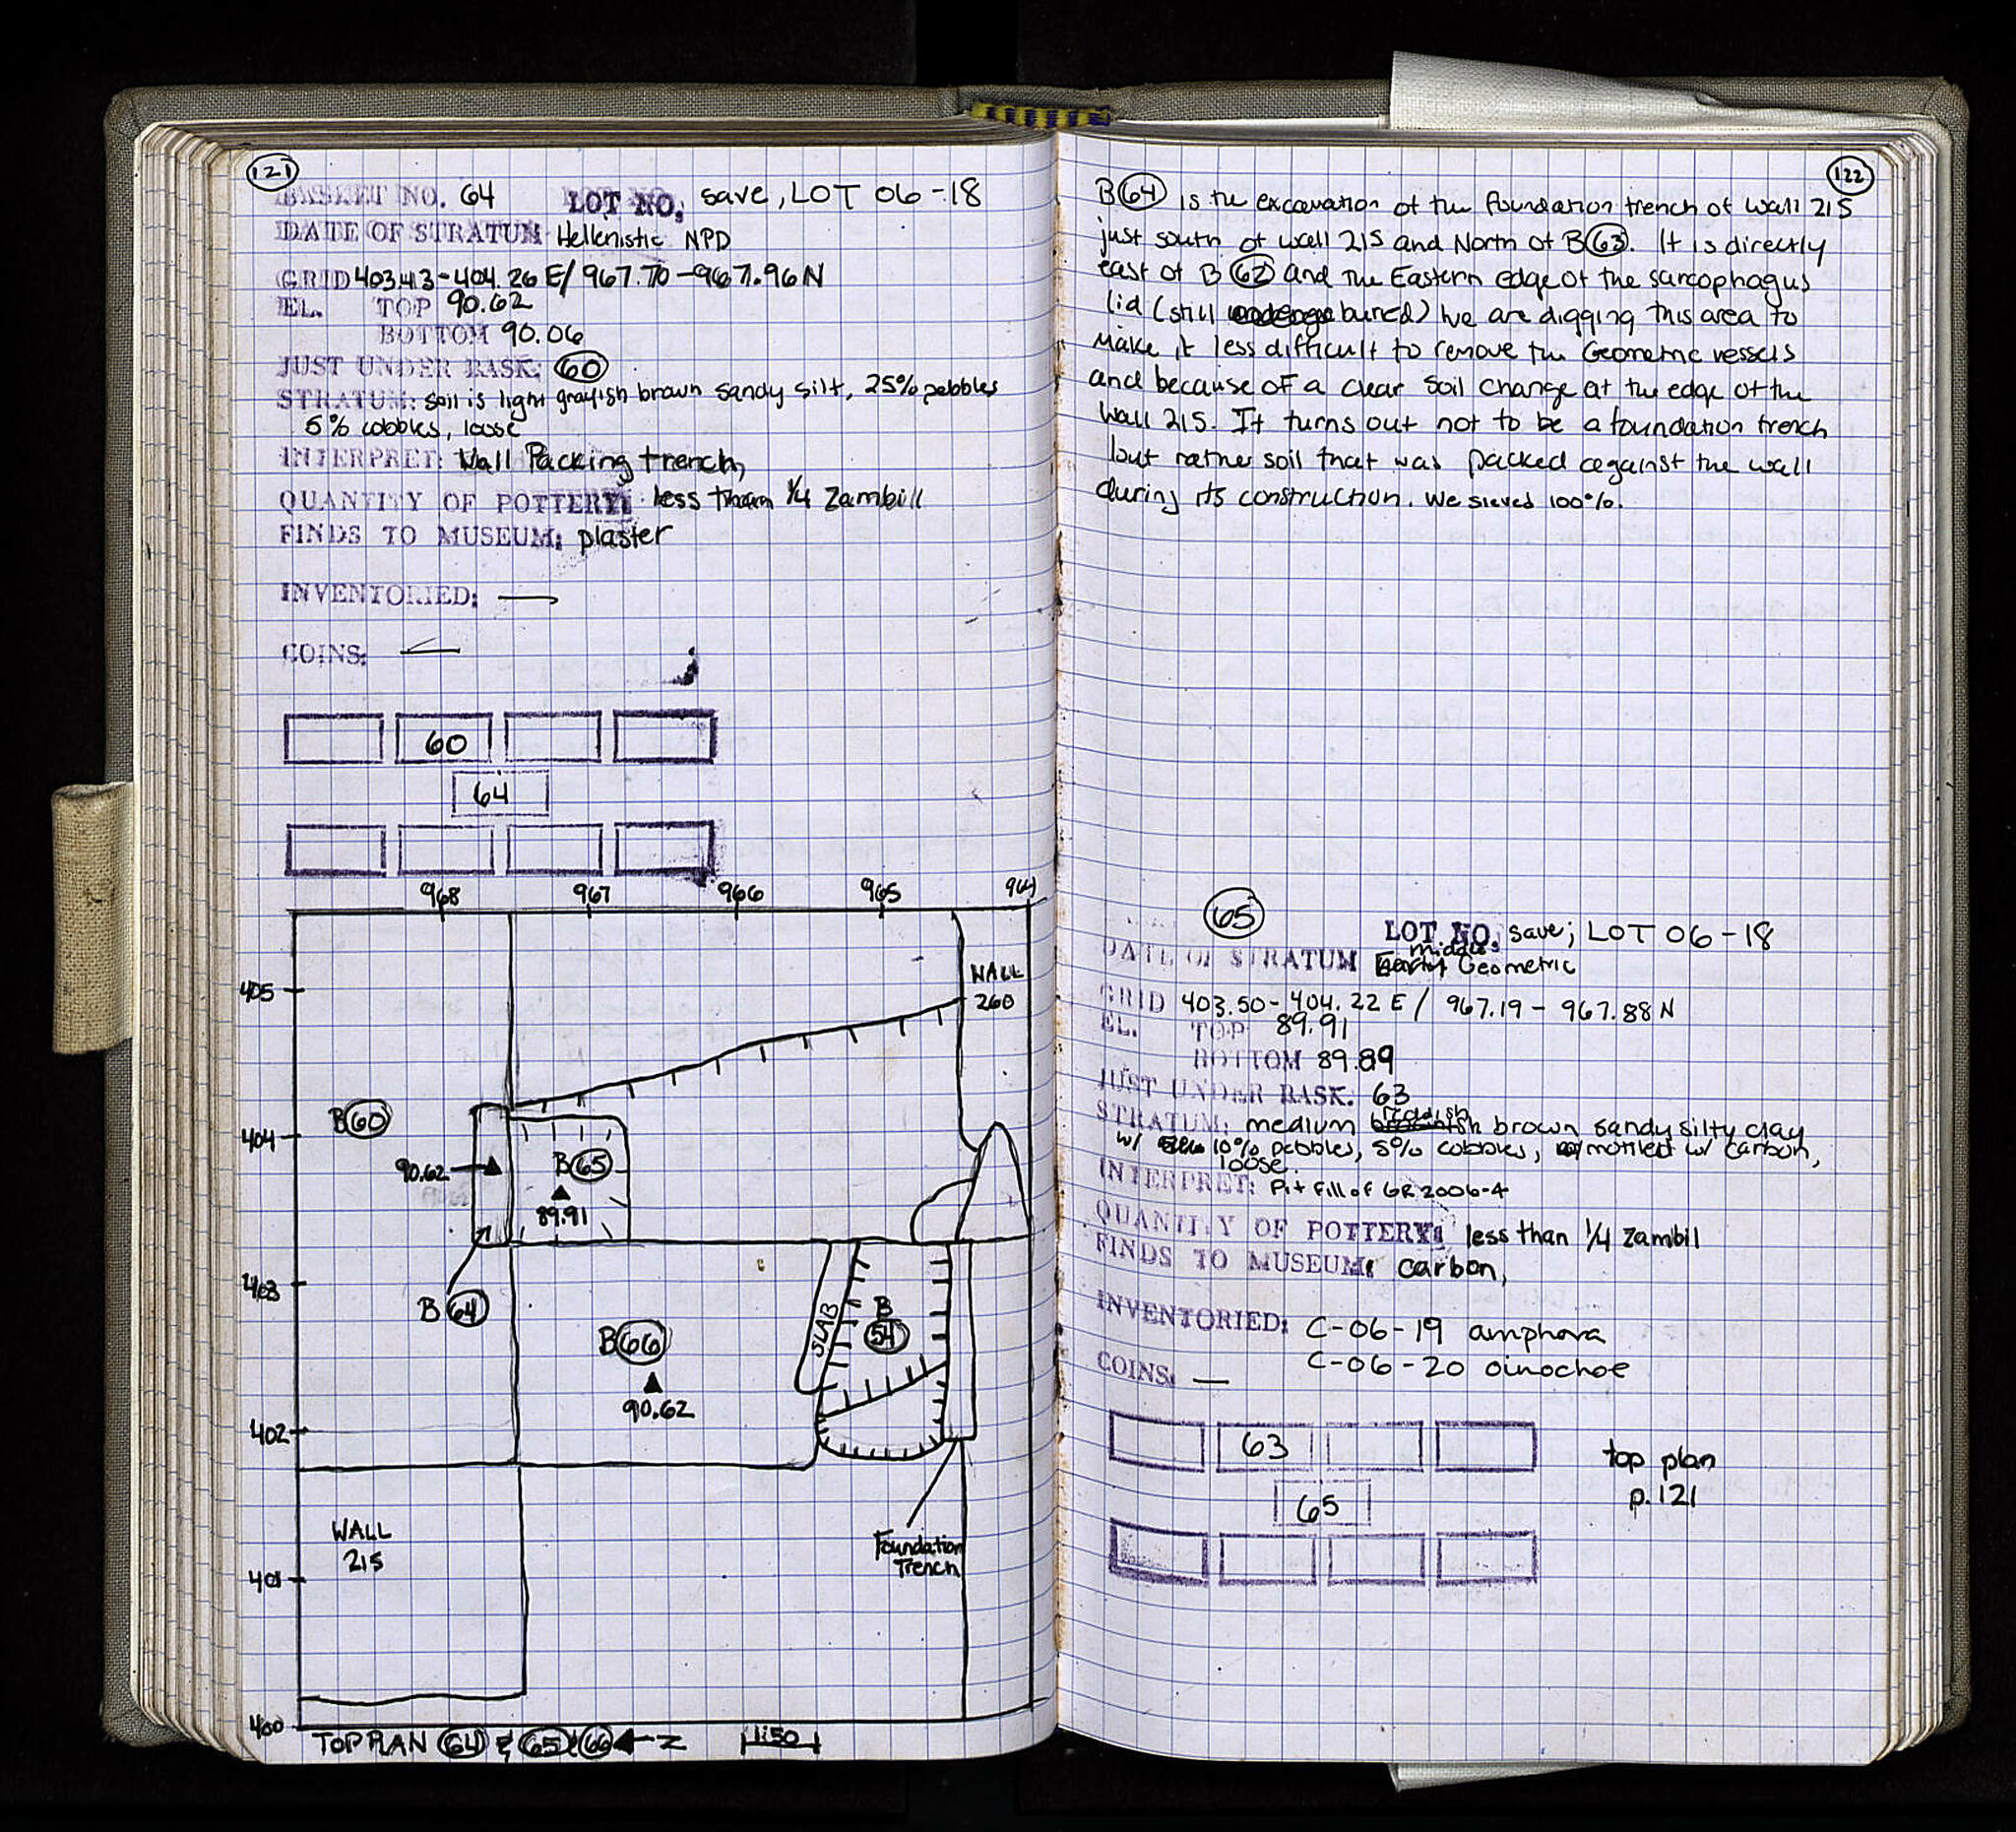 121
BASKET NO. 64 LOT NO. save, LOT 06-18
DATE OF STRATUM Hellenistic NPD
GRID 403.43-404.26 E/ 967.70-967.96 N
EL. TOP 90.62
BOTTOM 90.06
JUST UNDER BASK: 60
STRATUM: soil is light grayish brown sandy silt, 25% pebbles
5% cobbles, loose
INTERPRET: Wall Packing trench,
QUANTITY OF POTTERY: less than 1/4 Zambill
FINDS TO MUSEUM: plaster
INVENTORIED: —
COINS: —
60
64
968 967 966 965 964
405
WALL
260
B 60
404
90.62
B 65
89.91
403
B 64
SLAB
B
54
B 66
90.62
402
Foundation
Trench
WALL
215
401
400
TOP PLAN 64 & 65 & 66 N 1:50
122
B 64 is the excavation of the foundation trench of wall 215
just south of wall 215 and North of B 63. It is directly
east of B 62 and the Eastern edge of the sarcophagus
lid (still buried) We are digging this area to
make it less difficult to remove the Geometric vessels
and because of a clear soil change at the edge of the
wall 215. It turns out not to be a foundation trench
but rather soil that was packed against the wall
during its construction. We sieved 100%.
65
LOT NO. save; LOT 06-18
DATE OF STRATUM Early Middle Geometric
GRID 403.50-404.22 E/ 967.19-967.88 N
EL. TOP 89.91
BOTTOM 89.89
JUST UNDER BASK: 63
STRATUM: medium reddish brown sandy silty clay
w/ 10% pebbles, 5% cobbles, mottled w/ carbon,
loose.
INTERPRET: Pit fill of GR 2006-4
QUANTITY OF POTTERY: less than 1/4 zambil
FINDS TO MUSEUM: carbon,
INVENTORIED: C-06-19 amphora
C-06-20 oinochoe
COINS: —
63
65
top plan
p. 121